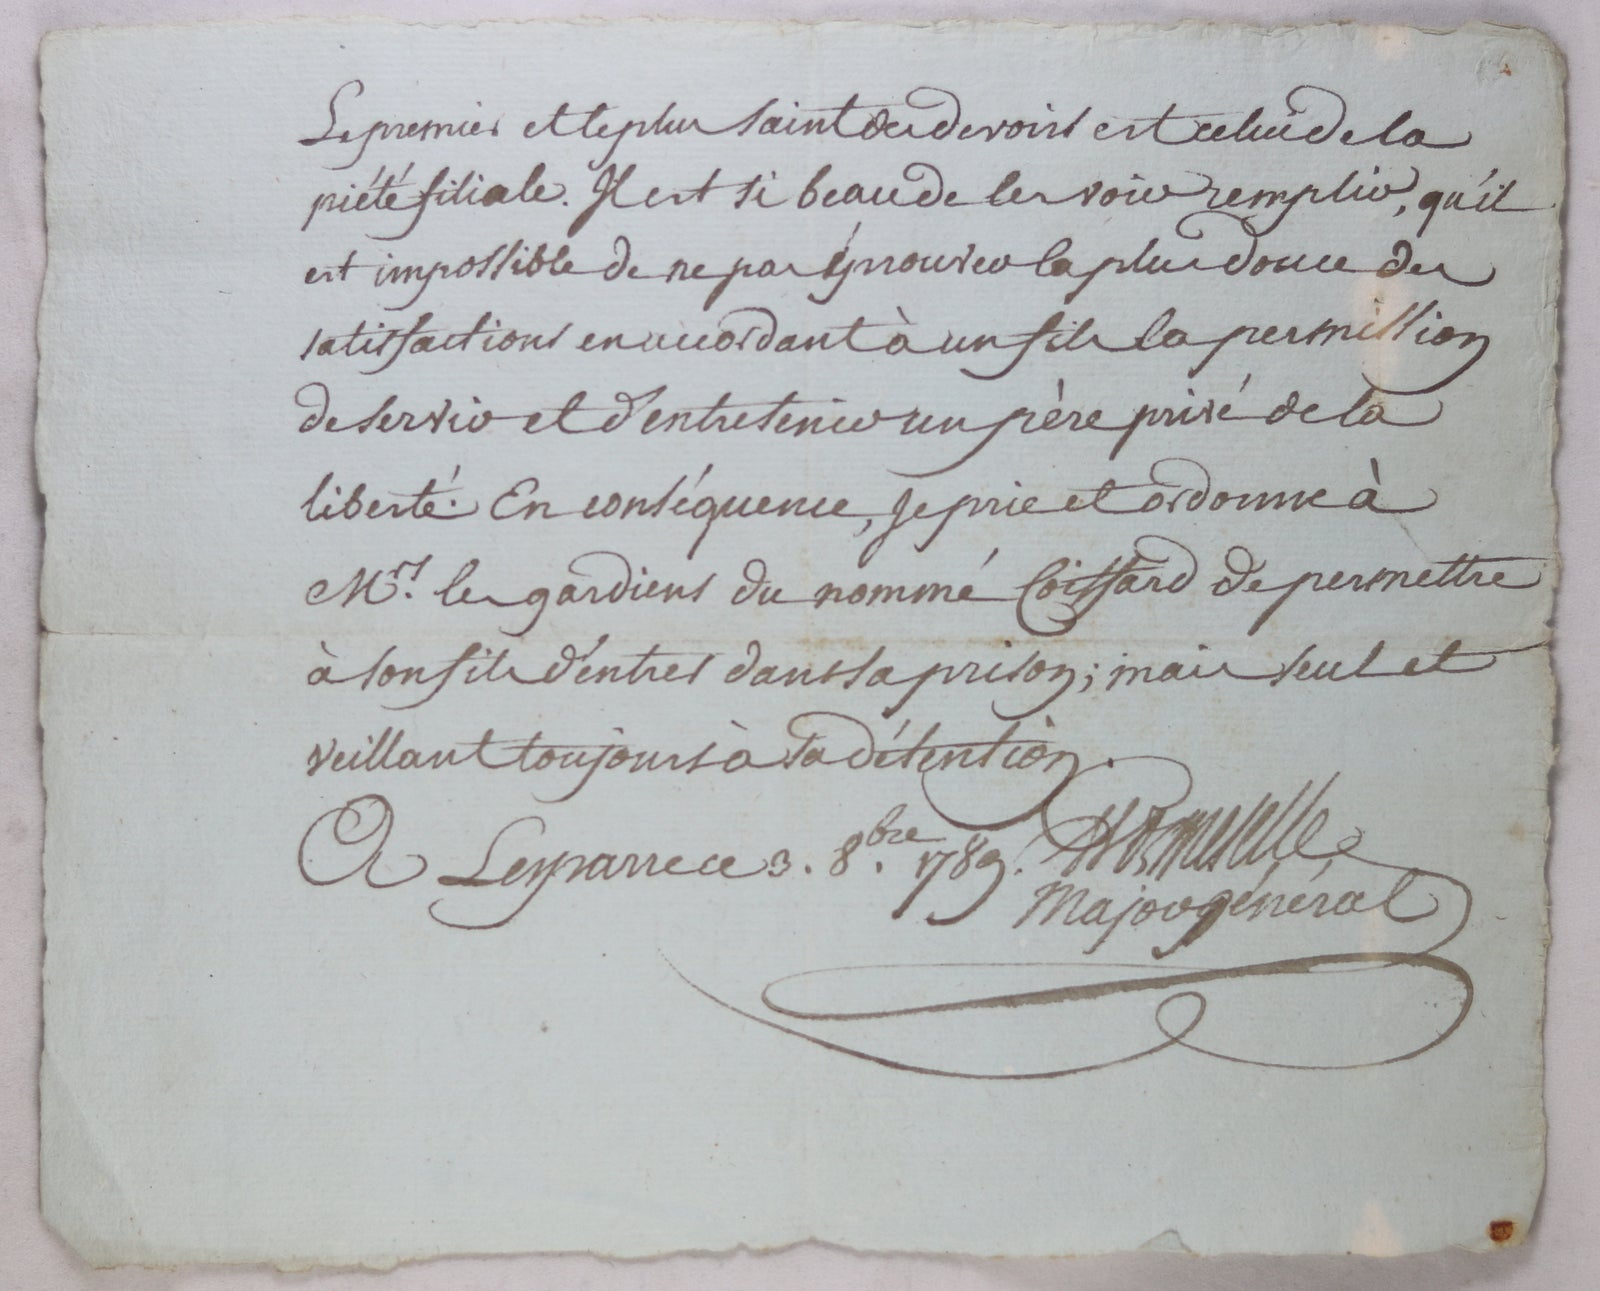 Le premier et le plus saint des devoirs est celui de la
piété filiale. Il est si beau de les voir remplir, qu'il
est impossible de ne pas éprouver la plus douce des
satisfactions en accordant à un fils la permission
de servir et d'entretenir un père privé de la
liberté. En conséquence, je prie et ordonne à
Mrs. les gardiens du nommé Coiffard de permettre
à son fils d'entrer dans sa prison; mais seul et
veillant toujours à sa détention.
A Lesparre ce 3. 8.bre 1789.
Major général